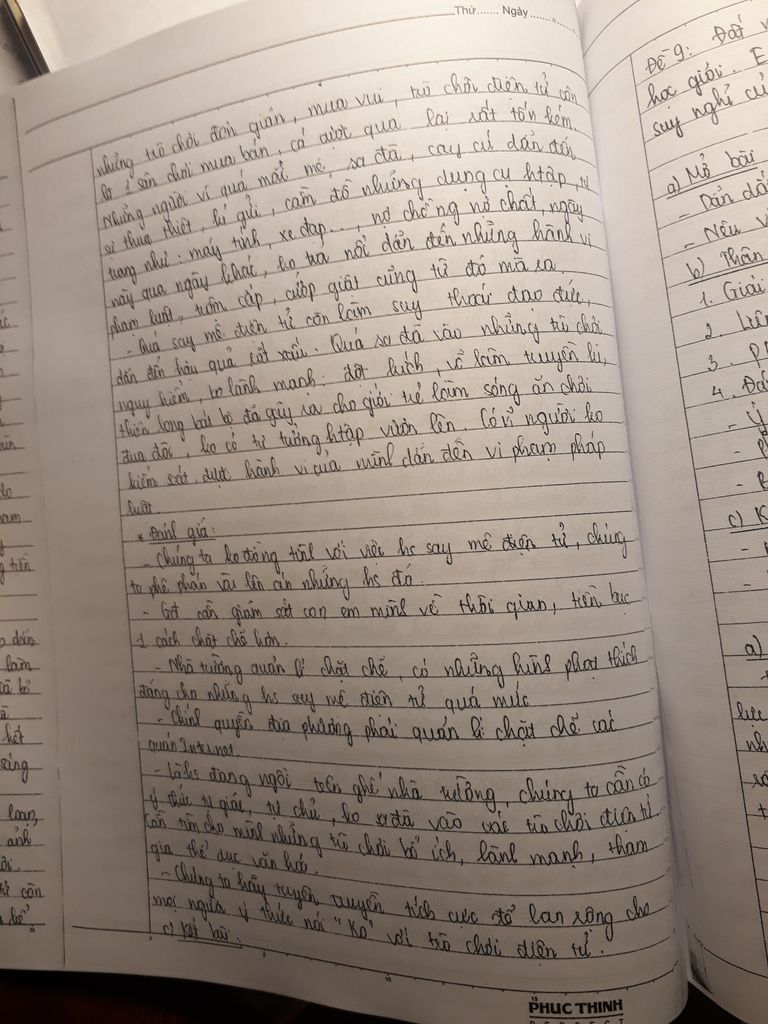 Thứ....... Ngày.......
những trò chơi đơn giản, mua vui, trò chơi điện tử còn
là 1 sân chơi mua bán, cá cược qua lại rất tốn kém.
Những người vì quá mải mê, sa đà, cay cú dẫn đến
bị thua thiệt, kí gửi, cầm đồ những dụng cụ htập, tư
trang như: máy tính, xe đạp..., nợ chồng nợ chất, ngày
này qua ngày khác, ko trả nổi dẫn đến những hành vi
phạm luật, trộm cắp, cướp giật cũng từ đó mà ra.
- Quá say mê điện tử còn làm suy thoái đạo đức,
dẫn đến hậu quả rất xấu. Quá sa đà vào những trò chơi
nguy hiểm, ko lành mạnh: đột kích, võ lâm truyền kì,
thiên long bát bộ đã gây ra cho giới trẻ làm sóng ăn chơi
đua đòi, ko có tư tưởng htập vươn lên. Có người ko
kiểm soát được hành vi của mình dẫn đến vi phạm pháp
luật.
* Đánh giá:
- Chúng ta ko đồng tình với việc hs say mê điện tử, chúng
ta phê phán và lên án những hs đó.
- Gđ cần giám sát con em mình về thời gian, tiền bạc
1 cách chặt chẽ hơn.
- Nhà trường quản lí chặt chẽ, có những hình phạt thích
đáng cho những hs say mê điện tử quá mức
- Chính quyền địa phương phải quản lí chặt chẽ các
quán Internet.
- Là hs đang ngồi trên ghế nhà trường, chúng ta cần có
ý thức tự giác, tự chủ, ko sa đà vào các trò chơi điện tử.
Cần tìm cho mình những trò chơi bổ ích, lành mạnh, tham
gia thể dục văn hoá.
- Chúng ta hãy tuyên truyền tích cực để lan rộng cho
mọi người ý thức nói "Ko" với trò chơi điện tử.
c) Kết bài:
PHUC THINH
Đề 9: Đất
học giỏi. E
suy nghĩ củ
a) Mở bài
- Dẫn dắ
- Nêu v
b) Thân
1. Giải
2.
3. P
4. Đá
- Ý
c) K
a)